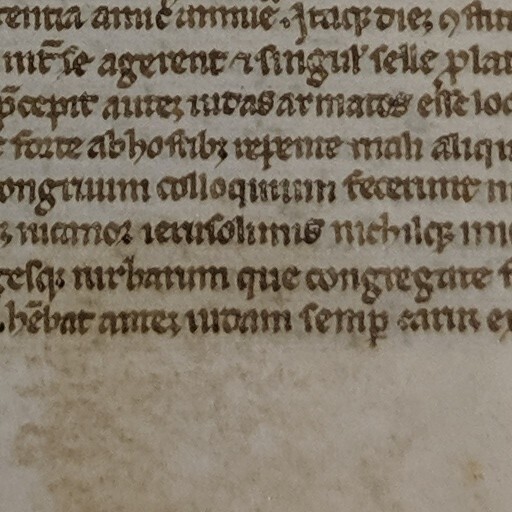 tentia amic̄ animūe. Itaqȝ dieȝ ꝯstitu
nt̄ se agerent ⁊ singul' selle plat
p̄cepit auteȝ iudas armatos esse loc
forte ab hostibȝ repente mali aliqu
ongruum colloquium fecerunt
ȝ nicanor ierusolimis nichilqȝ ini
gesqȝ turbarum que congregate f
hēbat auteȝ iudam semp̱ carus ex